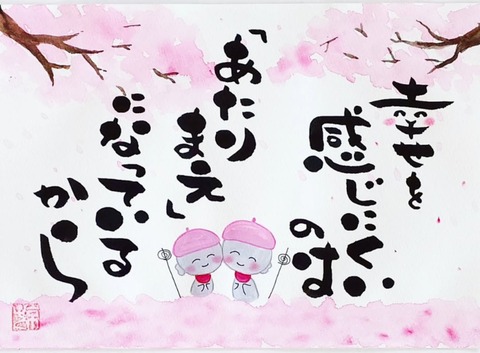 幸せを
感じにくい
のは
「あたり
まえ」
になっている
から